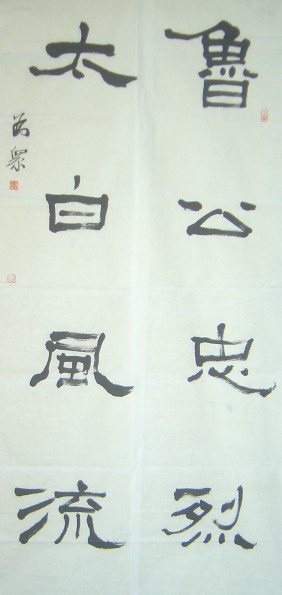 魯公忠烈
太白風流